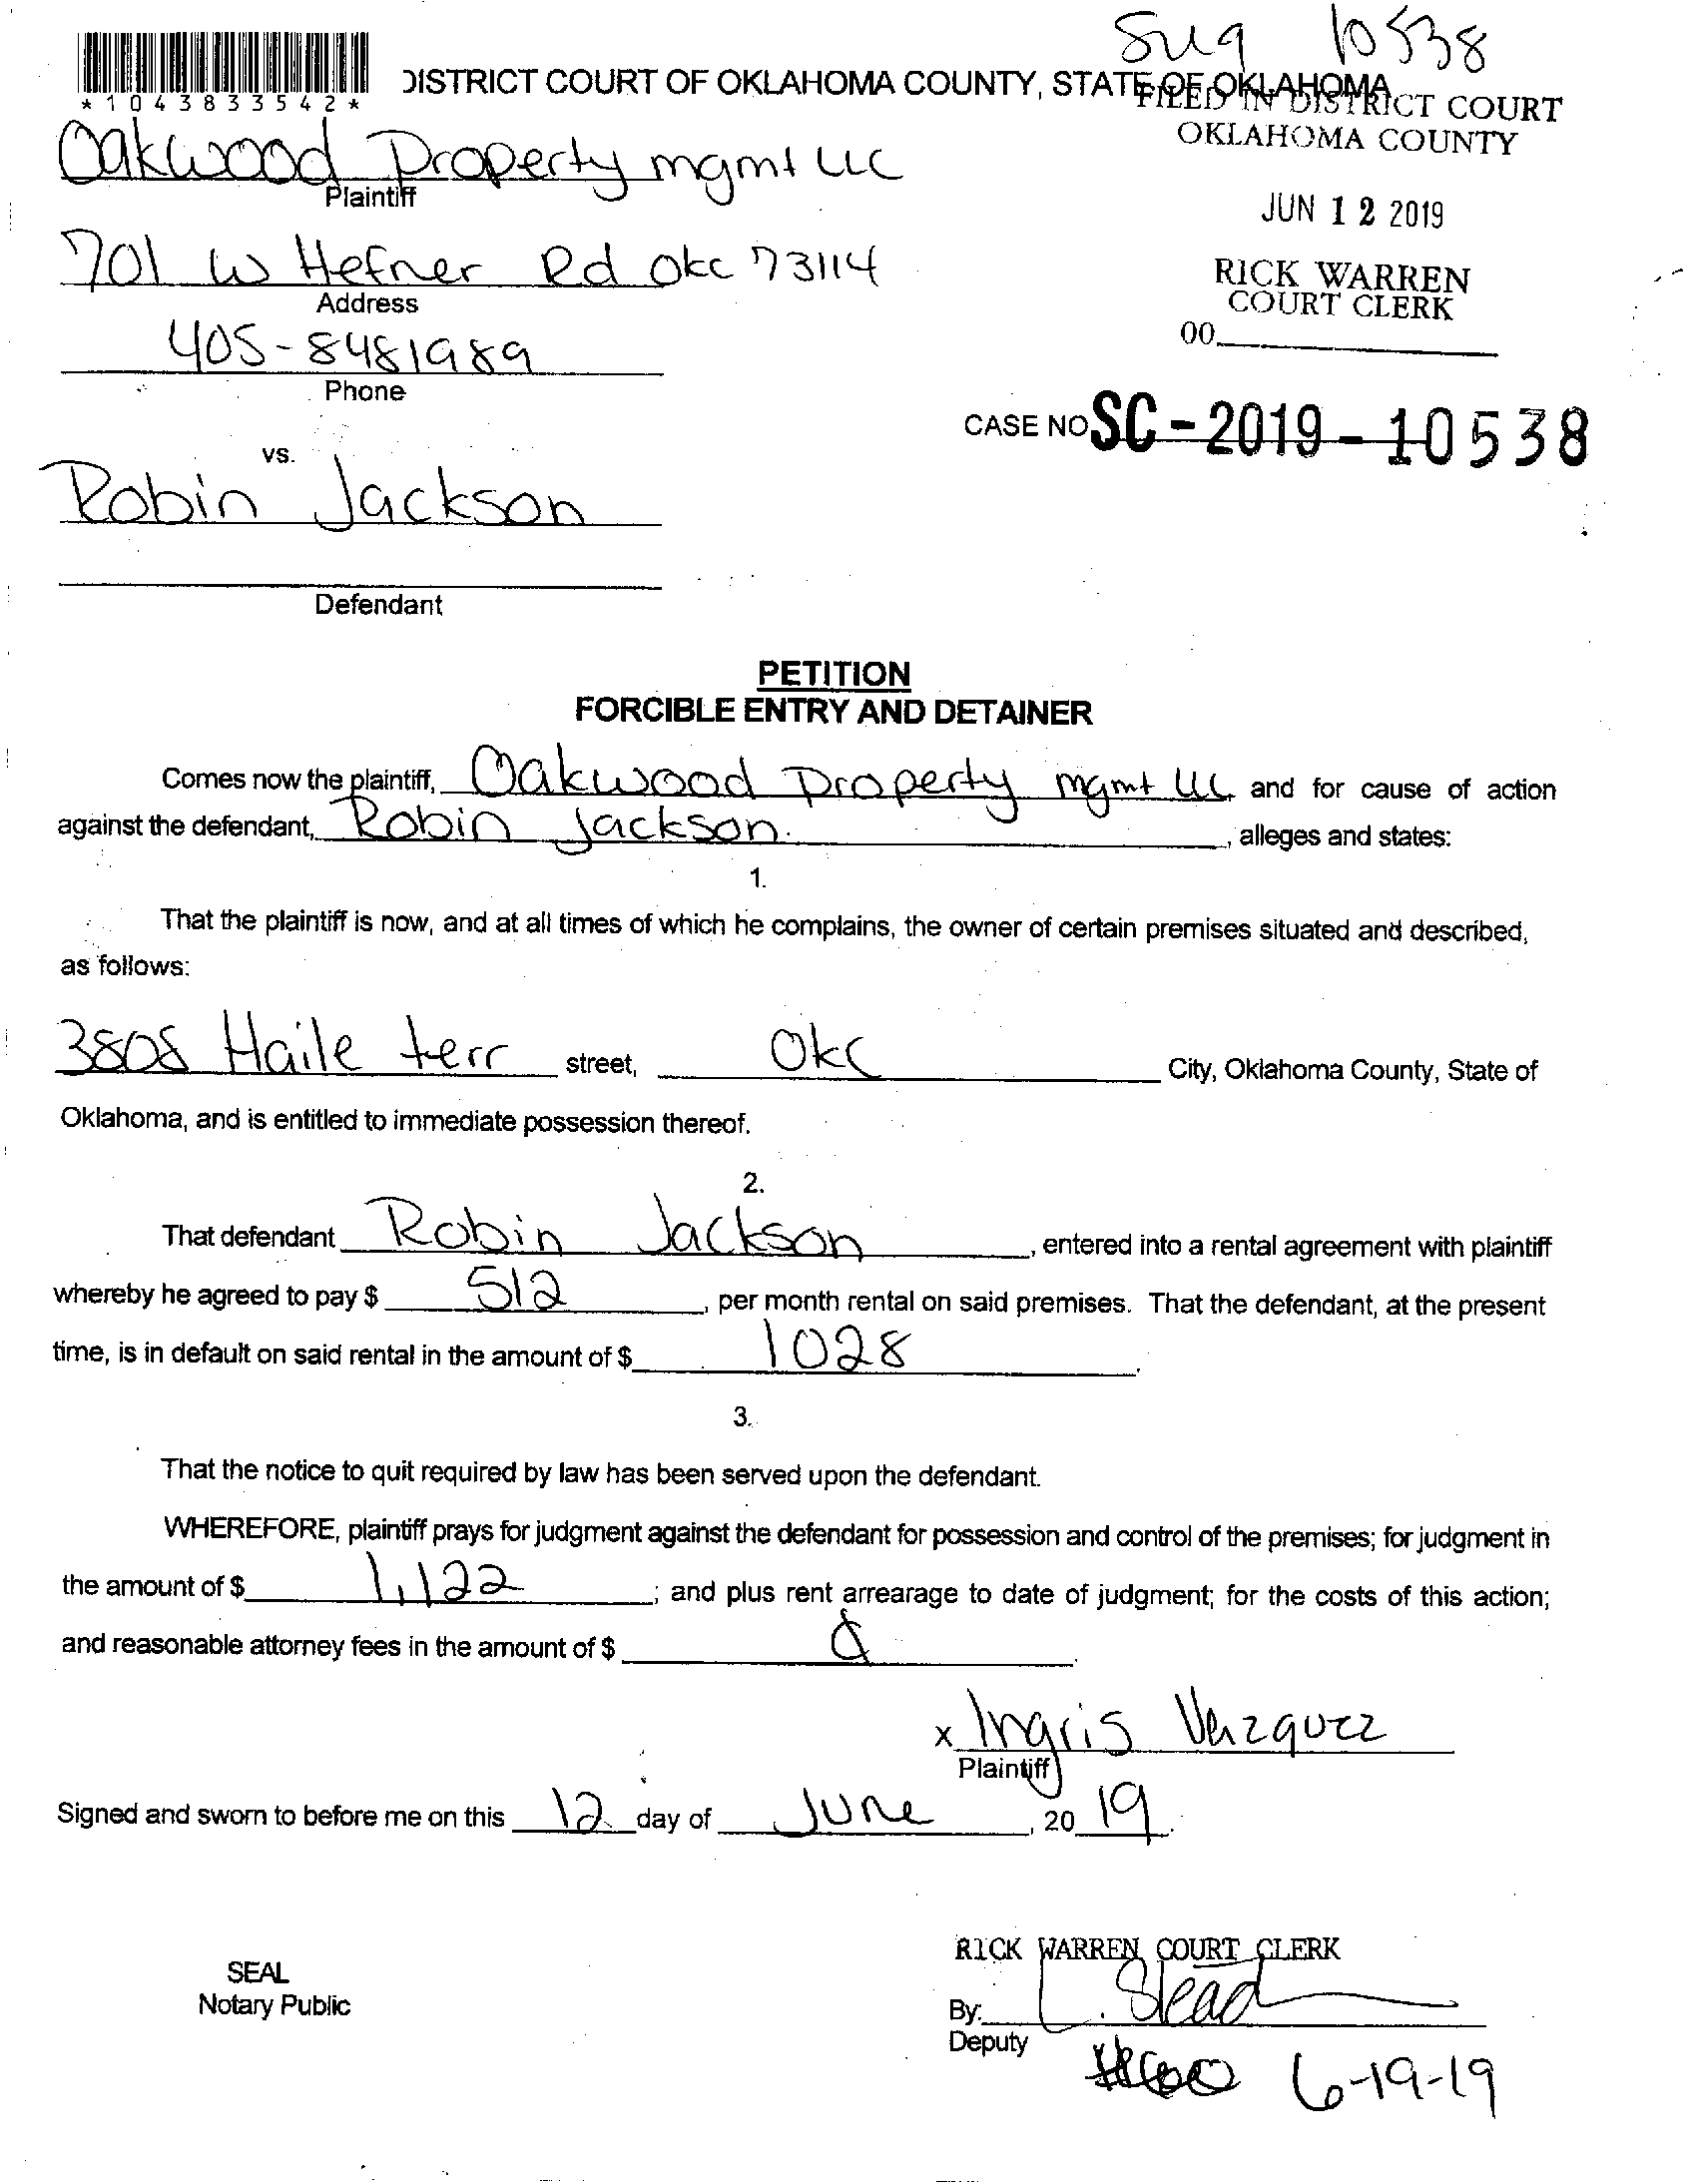 Sug 10538
*1043833542*
DISTRICT COURT OF OKLAHOMA COUNTY, STATE OF OKLAHOMA
FILED IN DISTRICT COURT
OKLAHOMA COUNTY
Oakwood Property mgmt LLC
Plaintiff
JUN 12 2019
701 W Hefner Rd Okc 73114
Address
RICK WARREN
COURT CLERK
405-8481989
00
Phone
CASE NO SC-2019-10538
vs.
Robin Jackson
Defendant
PETITION
FORCIBLE ENTRY AND DETAINER
Comes now the plaintiff, Oakwood Property mgmt LLC and for cause of action
against the defendant, Robin Jackson. , alleges and states:
1.
That the plaintiff is now, and at all times of which he complains, the owner of certain premises situated and described,
as follows:
3808 Haile terr street, Okc City, Oklahoma County, State of
Oklahoma, and is entitled to immediate possession thereof.
2.
That defendant Robin Jackson, entered into a rental agreement with plaintiff
whereby he agreed to pay $ 512, per month rental on said premises. That the defendant, at the present
time, is in default on said rental in the amount of $ 1028.
3.
That the notice to quit required by law has been served upon the defendant.
WHEREFORE, plaintiff prays for judgment against the defendant for possession and control of the premises; for judgment in
the amount of $ 1,122; and plus rent arrearage to date of judgment; for the costs of this action;
and reasonable attorney fees in the amount of $ .
x Ingris Vazquez
Plaintiff
Signed and sworn to before me on this 12 day of June, 2019.
RICK WARREN COURT CLERK
SEAL
Notary Public
By: L. Slead
Deputy
6-19-19